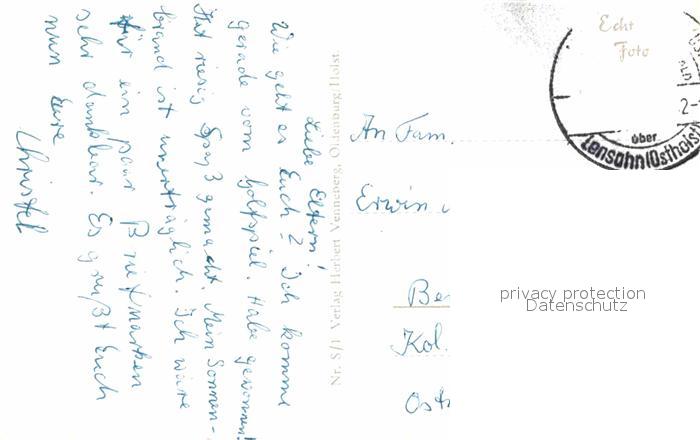 Liebe Eltern!
Wie geht es Euch? Ich komme
gerade vom Golfspiel. Habe gewonnen!
Hat riesig Spaß gemacht. Mein Sonnen-
brand ist unerträglich. Ich wäre
für ein paar Briefmarken
sehr dankbar. Es grüßt Euch
nun Eure
Christel
Nr. S/1 Verlag Herbert Venneberg, Oldenburg/Holst.
Echt
Foto
2-
über
Lensahn(Ostholst
An Fam.
Erwin
Be
Kol.
Ost
privacy protection
Datenschutz